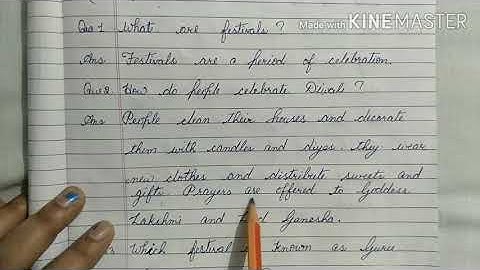 Made with KINEMASTER
Que 1 What are festivals?
Ans Festivals are a period of celebration.
Que 2 How do people celebrate Diwali?
Ans People clean their houses and decorate
them with candles and diyas. They wear
new clothes and distribute sweets and
gifts. Prayers are offered to Goddess
Lakshmi and Lord Ganesha.
Which festival is known as Guru